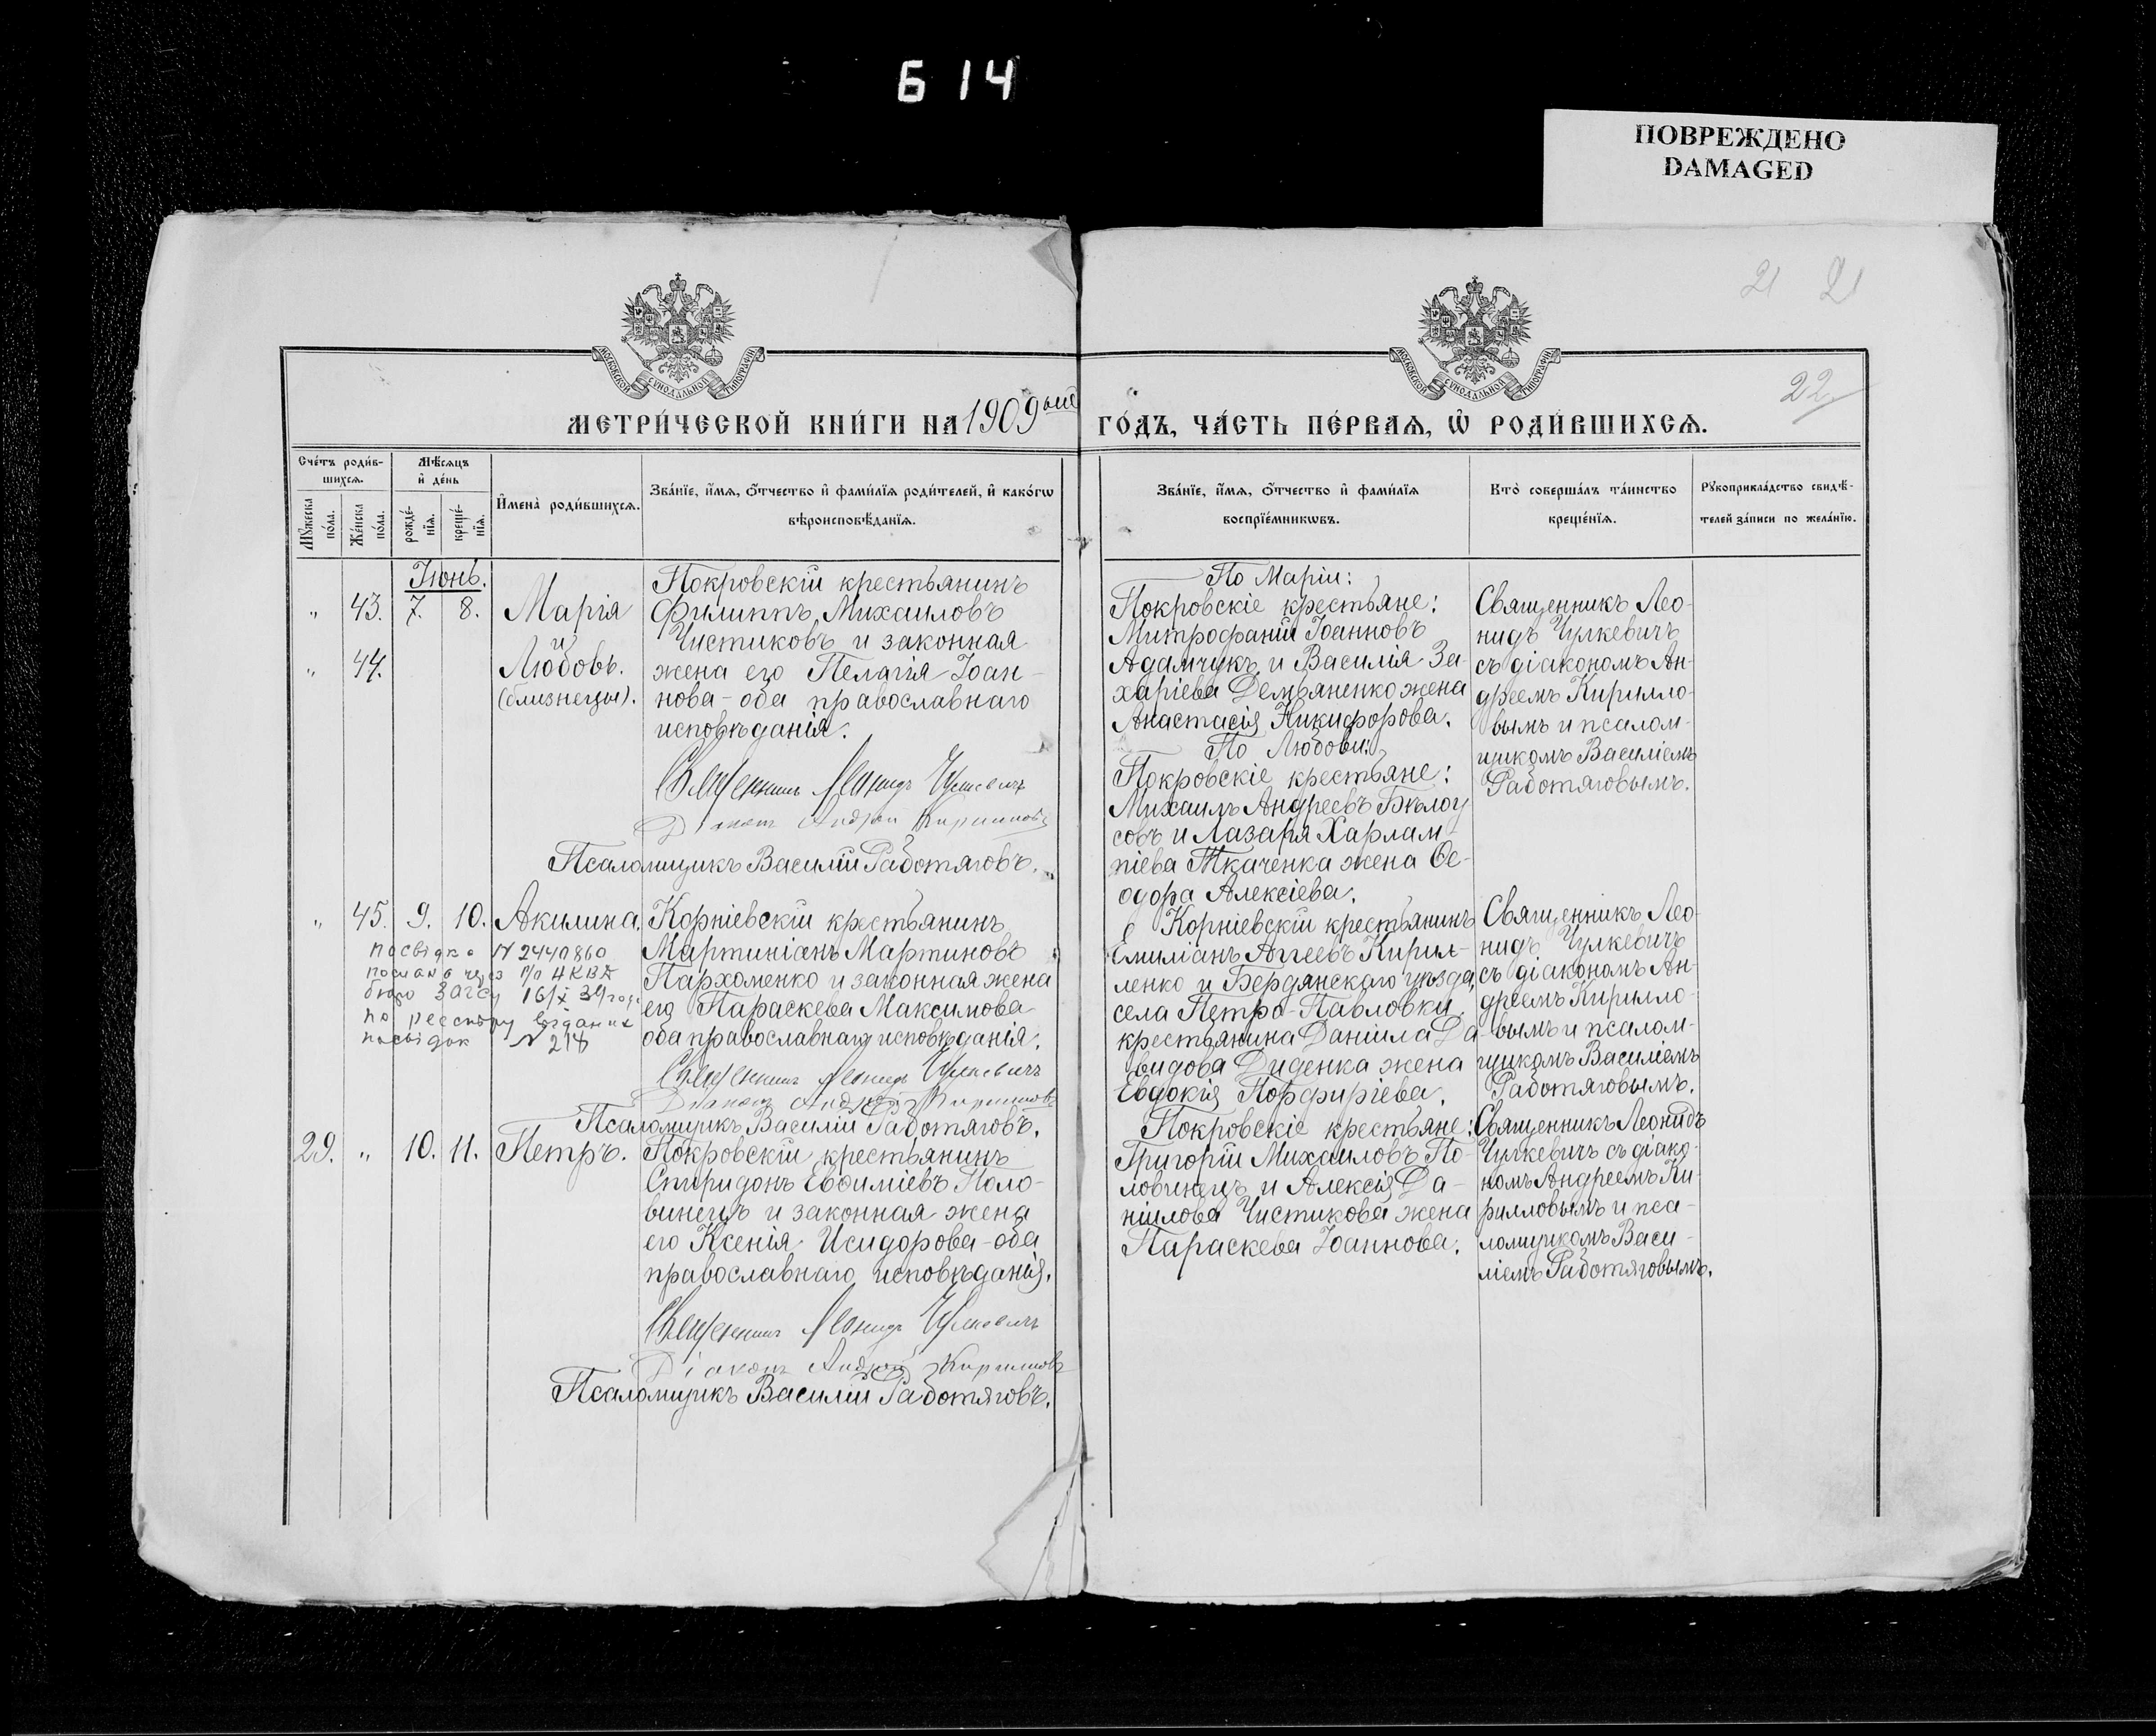 614
ПОВРЕЖДЕНО
DAMAGED
21 21
22
МОСКОВСКОЙ СУНОДАЛЬНОЙ ТИПОГРАФІИ
МОСКОВСКОЙ СУНОДАЛЬНОЙ ТИПОГРАФІИ
МЕТРИ́ЧЕСКОЙ КНИ́ГИ НА 1909 ГО́ДЪ, ЧА́СТЬ ПЕ́РВАѦ, Ѡ҆ РОДИ́ВШИХСѦ.
Сче́тъ роди́в-
шихсѧ.
Мꙋжеска по́ла.
Же́нска по́ла.
Мѣ́сѧцъ
и҆ де́нь
рожде́-
нїѧ.
креще́-
нїѧ.
И҆мена̀ роди́вшихсѧ.
Зва́нїе, и҆́мѧ, ѻ҆́тчество и҆ фами́лїѧ роди́телей, и҆ како́гѡ
вѣроисповѣ́данїѧ.
Зва́нїе, и҆́мѧ, ѻ҆́тчество и҆ фами́лїѧ
воспрїе́мникѡвъ.
Кто̀ соверша́лъ та́инство
креще́нїѧ.
Рꙋкоприкла́дство свидѣ́-
телей за́писи по жела́нїю.
Іюнь.
" 43. 7. 8. Марія
и
" 44. Любовь.
(близнецы).
Покровскій крестьянинъ
Филиппъ Михаиловъ
Чистиковъ и законная
жена его Пелагія Іоан-
нова - оба православнаго
исповѣданія.
Священникъ Леонидъ Чулкевичъ
Діаконъ Андрей Кирилловъ
Псаломщикъ Василій Работяговъ.
По Маріи:
Покровскіе крестьяне:
Митрофаній Іоанновъ
Адамчукъ и Василія За-
харіева Демьяненко жена
Анастасія Никифорова.
По Любови:
Покровскіе крестьяне:
Михаилъ Андреевъ Бѣлоу
совъ и Лазаря Харлам-
піева Ткаченка жена Ѳе-
одора Алексіева.
Священникъ Лео-
нидъ Чулкевичъ
съ діакономъ Ан-
дреемъ Кирилло-
вымъ и псалом-
щикомъ Василіемъ
Работяговымъ.
" 45. 9. 10. Акилина.
посвідка N 2440860
послано через п/о 4 КВА
бюро ЗАГСу 16/X 39 году
по реєстру виданих
посвідок № 218
Корніевскій крестьянинъ
Мартиніанъ Мартиновъ
Пархоменко и законная жена
его Параскева Максимова
оба православнаго исповѣданія.
Священникъ Леонидъ Чулкевичъ
Діаконъ Андрей Кирилловъ
Псаломщикъ Василій Работяговъ.
Корніевскій крестьянинъ
Емиліанъ Аггеевъ Кирил-
ленко и Бердянскаго уѣзда,
села Петро-Павловки
крестьянина Даніила Да-
видова Диденка жена
Евдокія Порфиріева.
Священникъ Лео-
нидъ Чулкевичъ
съ діакономъ Ан-
дреемъ Кирилло-
вымъ и псалом-
щикомъ Василіемъ
Работяговымъ.
29. " 10. 11. Петръ.
Покровскій крестьянинъ
Спиридонъ Евѳиміевъ Поло-
винецъ и законная жена
его Ксенія Исидорова - оба
православнаго исповѣданія.
Священникъ Леонидъ Чулкевичъ
Діаконъ Андрей Кирилловъ
Псаломщикъ Василій Работяговъ.
Покровскіе крестьяне:
Григорій Михаиловъ По-
ловинецъ и Алексія Да-
ніилова Чистикова жена
Параскева Іоаннова.
Священникъ Леонидъ
Чулкевичъ съ діако-
номъ Андреемъ Ки-
рилловымъ и пса-
ломщикомъ Васи-
ліемъ Работяговымъ.